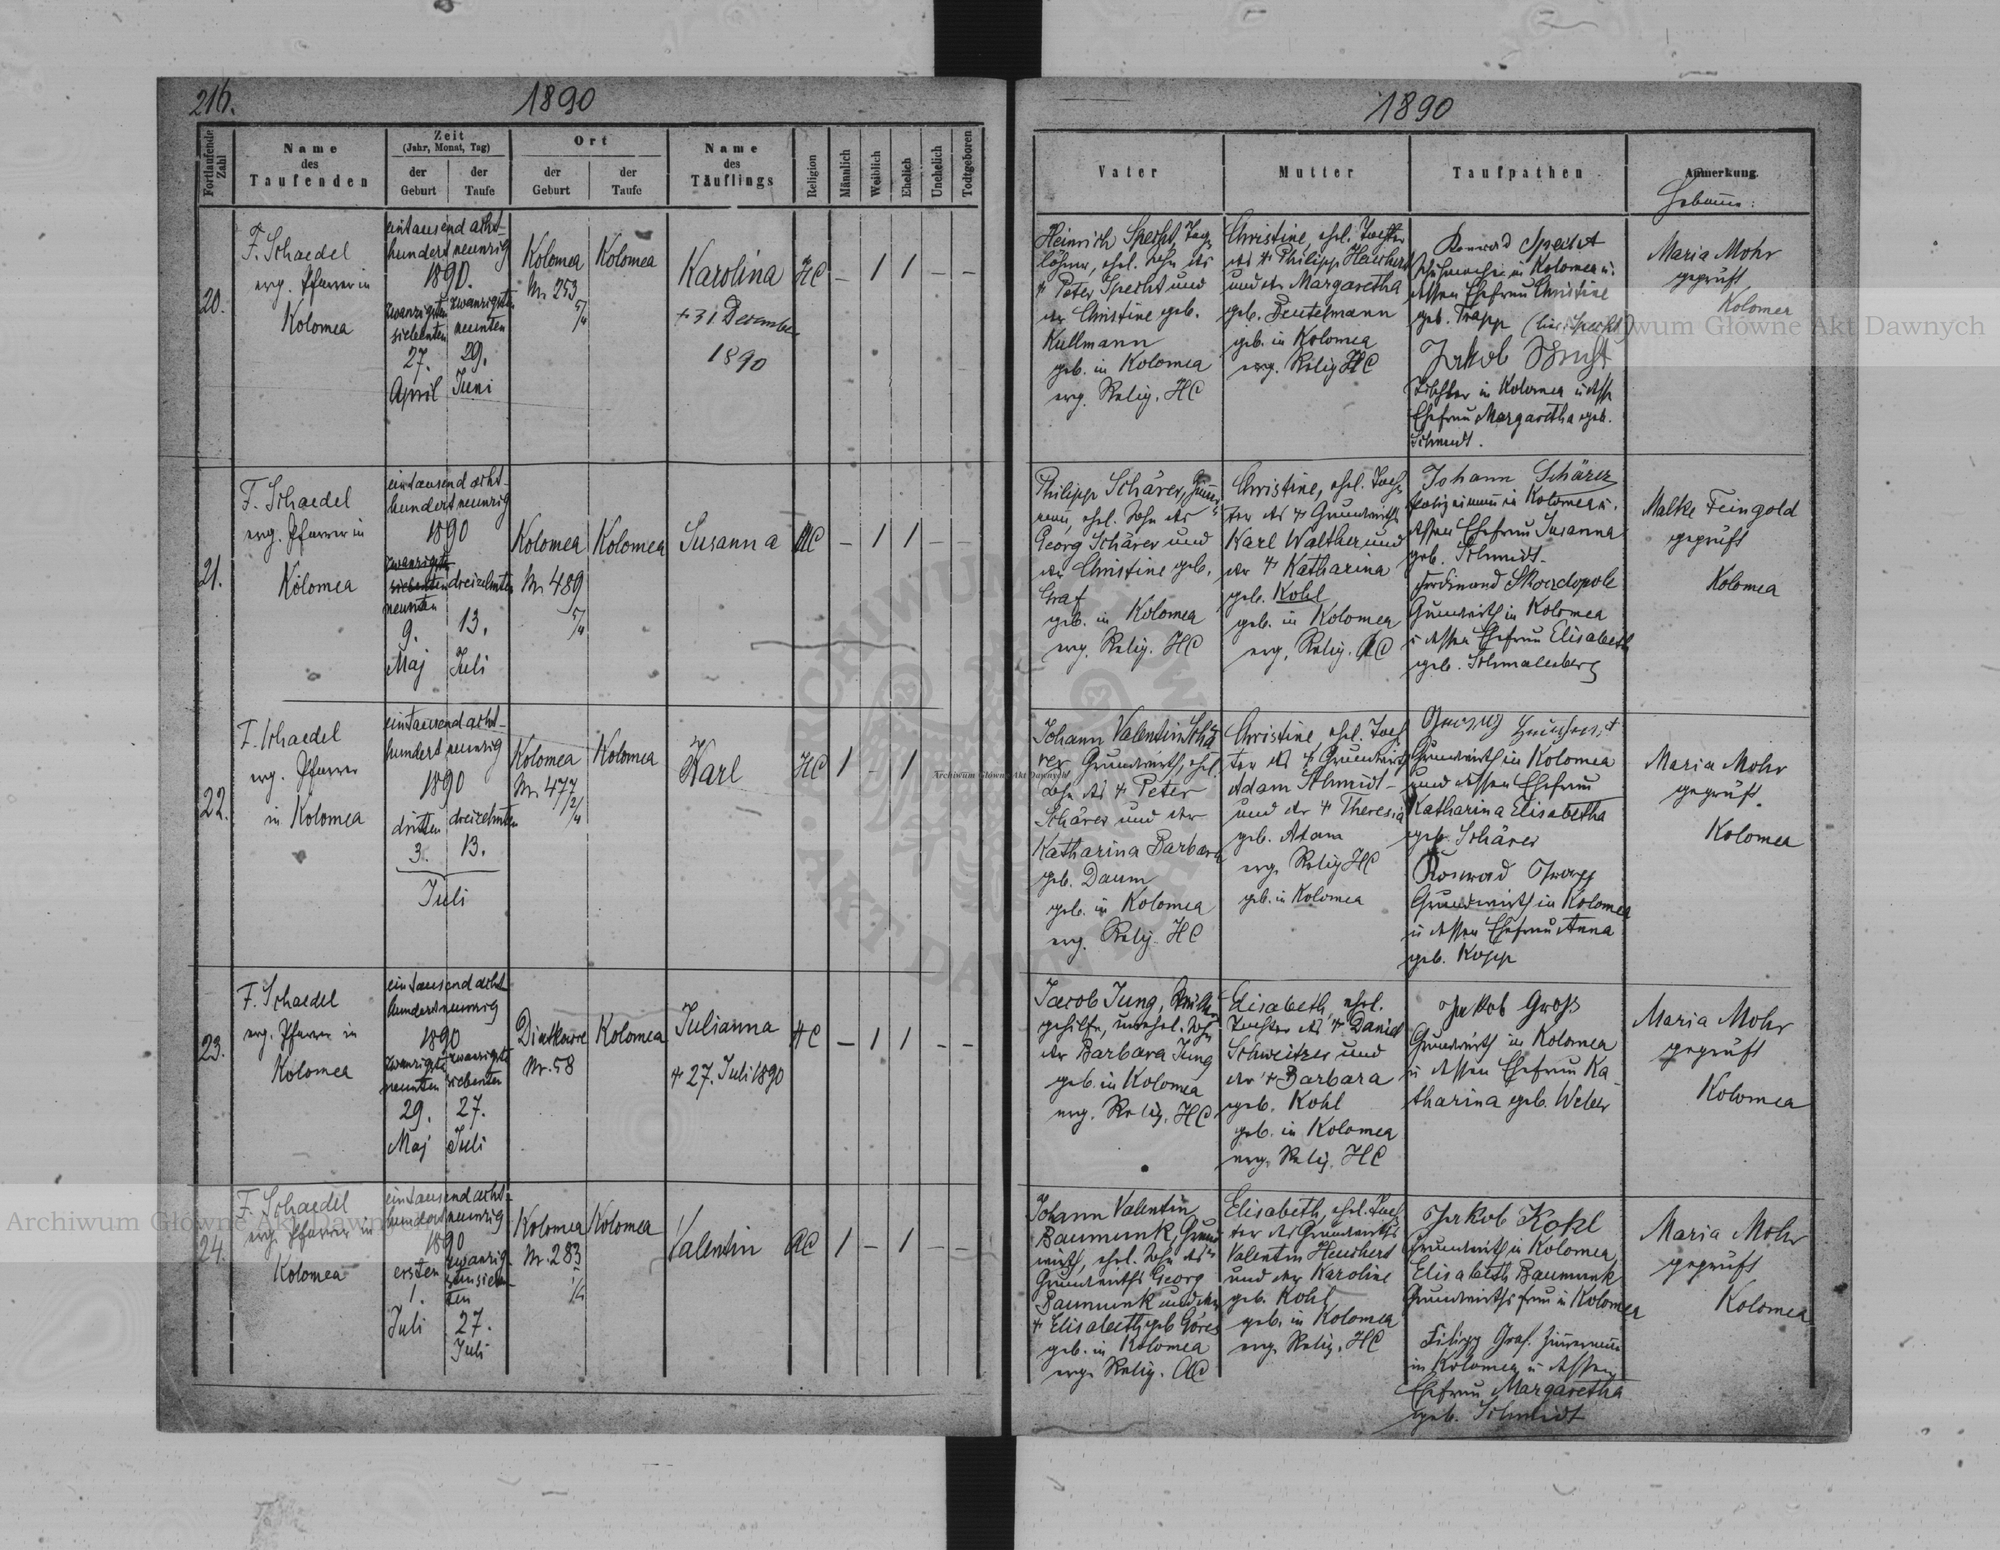 216.
1890
Fortlaufende Zahl
Name
des
Taufenden
Zeit
(Jahr, Monat, Tag)
der
Geburt
der
Taufe
Ort
der
Geburt
der
Taufe
Name
des
Täuflings
Religion
Männlich
Weiblich
Ehelich
Unehelich
Todtgeboren
20.
F. Schaedel
evg. Pfarrer in
Kolomea
eintausend acht-
hundert neunzig
1890.
zwanzigsten
siebenten
27.
April
zwanzigsten
neunten
29.
Juni
Kolomea
Nr. 253
5/4
Kolomea
Karolina
+ 31. Dezember
1890
HC
– 1 1 – –
21.
F. Schaedel
evg. Pfarrer in
Kolomea
eintausend acht-
hundert neunzig
1890
zwanzigsten
siebenten
neunten
9.
Maj
dreizehnten
13.
Juli
Kolomea
Nr. 489
5/4
Kolomea
Susanna
HC
– 1 1 – –
22.
F. Schaedel
evg. Pfarrer
in Kolomea
eintausend acht-
hundert neunzig
1890
dritten
3.
dreizehnten
13.
Juli
Kolomea
Nr. 477
2/4
Kolomea
Karl
HC
1 – 1
23.
F. Schaedel
evg. Pfarrer in
Kolomea
eintausend acht
hundert neunzig
1890
zwanzigst
neunten
29.
Maj
zwanzigst
siebenten
27.
Juli
Nr. 58
Kolomea
Julianna
+ 27. Juli 1890
HC
– 1 1 – –
24.
F. Schaedel
evg. Pfarrer in
Kolomea
eintausend acht-
hundert neunzig
1890
ersten
1.
Juli
zwanzig-
stensieben-
ten
27.
Juli
Kolomea
Nr. 283
1/4
Kolomea
Valentin
AC
1 – 1 – –
1890
Vater
Mutter
Taufpathen
Anmerkung.
Hebamme:
Heinrich Specht, Tag-
löhner, ehel. Sohn des
+ Peter Specht und
der Christine geb.
Kullmann
geb. in Kolomea
evg. Relig. HC
Christine, ehel. Tochter
des + Philipp Heuchert
und der Margaretha
geb. Beutelmann
geb. in Kolomea
evg. Relig HC
Konrad Specht
Schuhmacher in Kolomea u.
dessen Ehefrau Christine
geb. Trapp
Jakob
in Kolomea u dess
Ehefrau Margaretha geb.
Schmidt.
Maria Mohr
geprüft
Kolomea
Philipp Schärer, Zimmer-
mann, ehel. Sohn des
Georg Schärer und
der Christine geb.
Graf
geb. in Kolomea
evg. Relig. HC
Christine, ehel. Toch-
ter des + Grundwirths
Karl Walther und
der + Katharina
geb. Kohl
geb. in Kolomea
evg. Relig. AC
Johann Schärer
Polizeimann in Kolomea u.
dessen Ehefrau Susanna
geb. Schmidt.
Ferdinand Skordopole
Grundwirth in Kolomea
u dessen Ehefrau Elisabeth
geb. Schmalenberg
Malke Feingold
geprüft
Kolomea
Johann Valentin Schä
rer Grundwirth, ehel.
Sohn des + Peter
Schärer und der
Katharina Barbara
geb. Daum
geb. in Kolomea
evg. Relig. HC
Christine ehel. Toch
ter des + Grundwirth
Adam Schmidt
und der + Theresia
geb. Adam
evg. Relig HC
geb. in Kolomea
Georg Heuchert
Grundwirth in Kolomea
und dessen Ehefrau
Katharina Elisabetha
geb. Schärer
Konrad Trapp
Grundwirth in Kolomea
u dessen Ehefrau Anna
geb. Kopp
Maria Mohr
geprüft.
Kolomea
Jacob Jung,
gehilfe, unehel. Sohn
der Barbara Jung
geb. in Kolomea
evg. Relig. HC
Elisabeth, ehel.
Tochter des + Daniel
Schweitzer und
der + Barbara
geb. Kohl
geb. in Kolomea
evg. Relig. HC
Jakob Gross
Grundwirth in Kolomea
u dessen Ehefrau Ka-
tharina geb. Weber
Maria Mohr
geprüft
Kolomea
Johann Valentin
Baumunk, Grund-
wirth, ehel. Sohn des
Grundwirths Georg
Baumunk und der
+ Elisabeth geb Gores
geb. in Kolomea
evg. Relig. AC
Elisabeth, ehel. Toch
ter des Grundwirths
Valentin Heuchert
und der Karoline
geb. Kohl
geb. in Kolomea
evg. Relig. HC
Jakob Kohl
Grundwirth in Kolomea
Elisabeth Baumunk
Grundwirthsfrau in Kolomea
Filipp Graf. Zimmermann
in Kolomea u dessen
Ehefrau Margaretha
geb. Schmidt
Maria Mohr
geprüft
Kolomea
Archiwum Główne Akt Dawnych
Archiwum Główne Akt Dawnych
Archiwum Główne Akt Dawnych